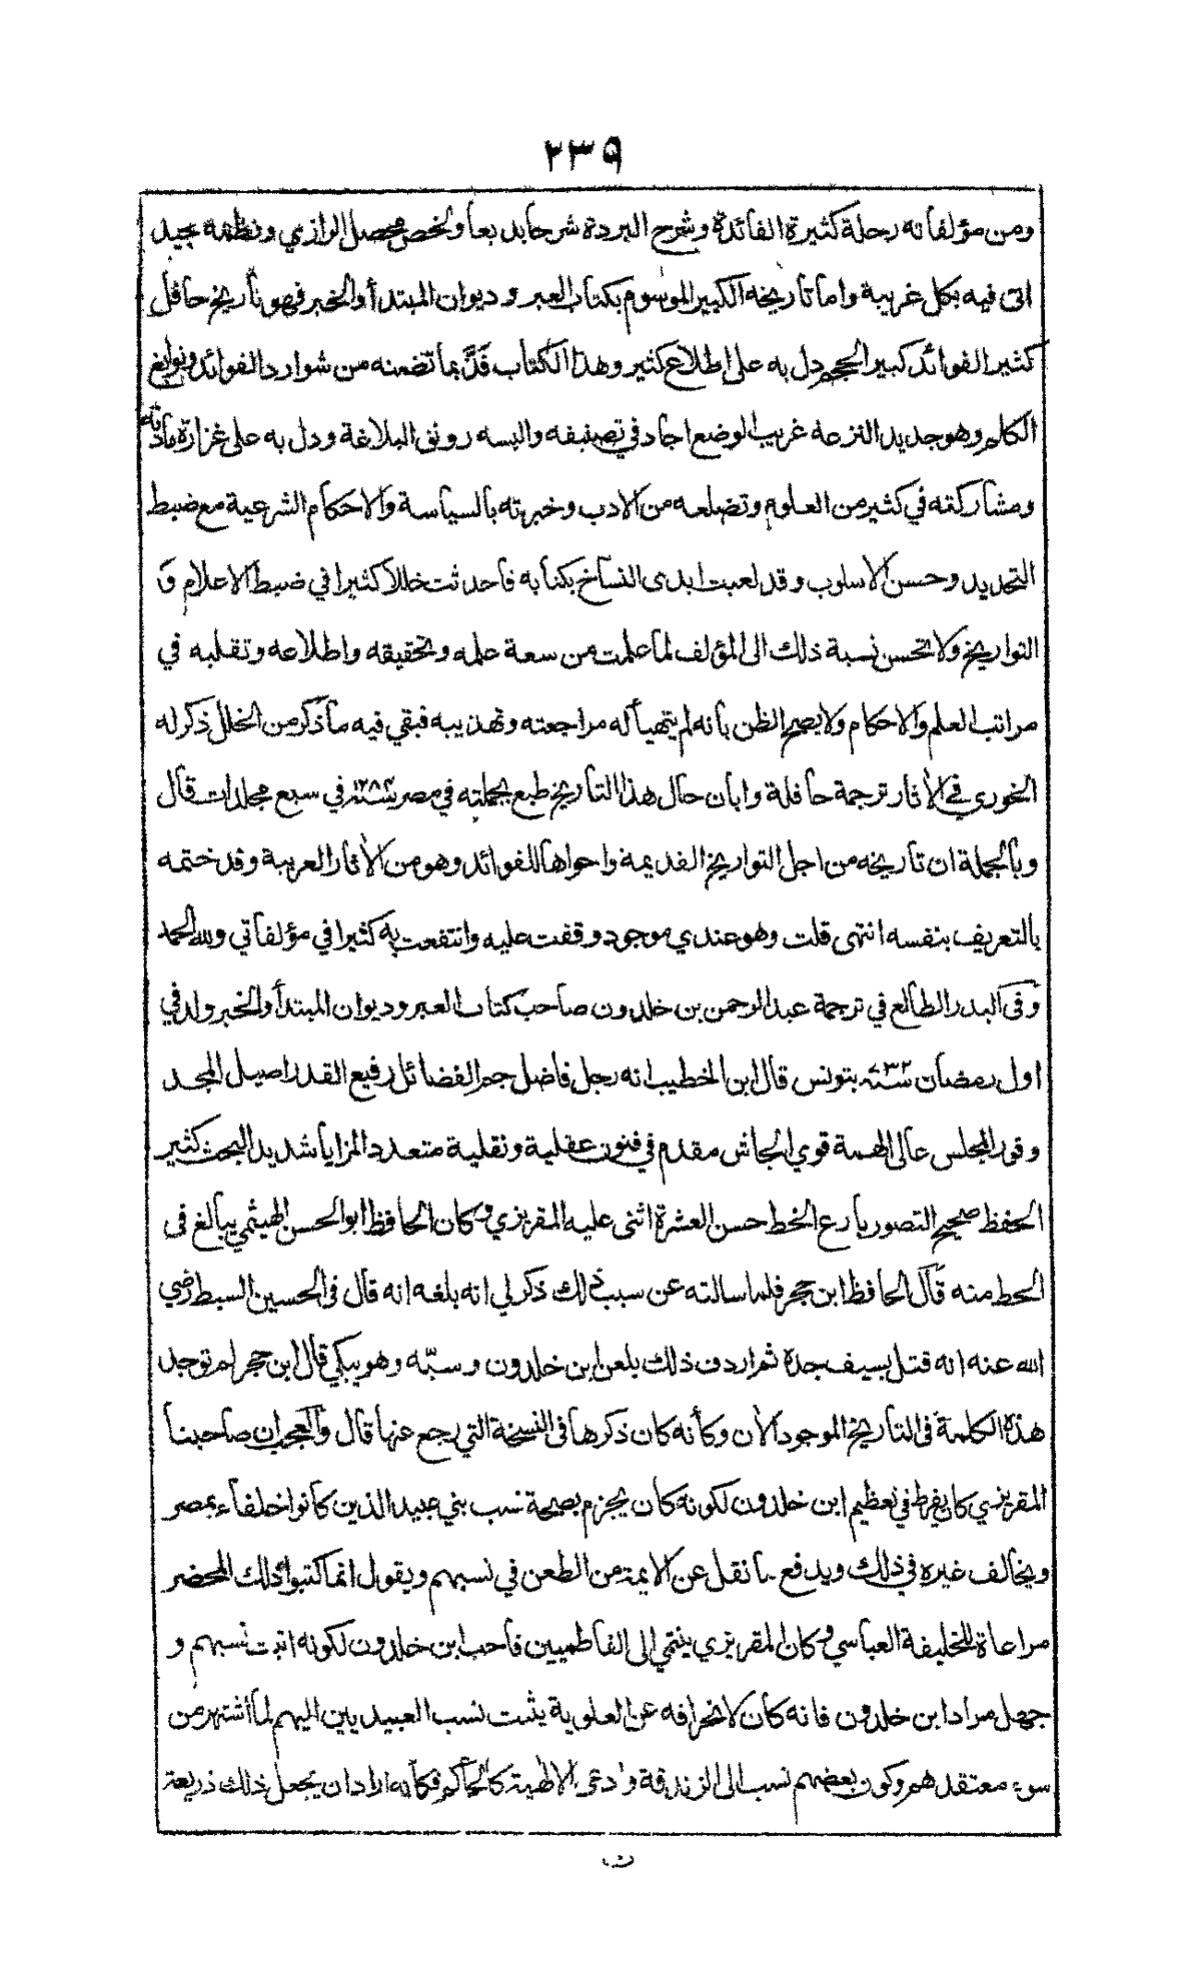 ٢٣٩
ومن مؤلفاته رحلة كثيرة الفائدة وشرح البردة شرحا بديعا ولخص محصل الرازي ونظمه جيد
اتى فيه بكل غريبة واما تاريخه الكبير الموسوم بكتاب العبر وديوان المبتدأ والخبر فهو تاريخ حافل
كثير الفوائد كبير الحجم دل به على اطلاع كثير وهذا الكتاب فَذٌّ بما تضمنه من شوارد الفوائد ونوابغ
الكلم وهو جديد النزعة غريب الوضع اجاد في تصنيفه والبسه رونق البلاغة ودل به على غزارة مادته
ومشاركته في كثير من العلوم وتضلعه من الادب وخبرته بالسياسة والاحكام الشرعية مع ضبط
التحديد وحسن الاسلوب وقد لعبت ايدى النساخ بكتابه فاحدثت خللا كثيرا في ضبط الاعلام و
التواريخ ولا تحسن نسبة ذلك الى المؤلف لما علمت من سعة علمه وتحقيقه واطلاعه وتقلبه في
مراتب العلم والاحكام ولا يصح الظن بانه لم يتهيأ له مراجعته وتهذيبه فبقي فيه ما ذكر من الخلل ذكر له
الخوري في الآثار ترجمة حافلة وابان حال هذا التاريخ طبع بجملته في مصر سنة ١٢٨٤ في سبع مجلدات قال
وبالجملة ان تاريخه من اجل التواريخ القديمة واحواها للفوائد وهو من الآثار العربية وقد ختمه
بالتعريف بنفسه انتهى قلت وهو عندي موجود وقفت عليه وانتفعت به كثيرا في مؤلفاتي ولله الحمد
وفى البدر الطالع في ترجمة عبد الرحمن بن خلدون صاحب كتاب العبر وديوان المبتدأ والخبر ولد في
اول رمضان سنة ٧٣٢ بتونس قال ابن الخطيب انه رجل فاضل جم الفضائل رفيع القدر اصيل المجد
وقور المجلس عالى الهمة قوي الجاش مقدم في فنون عقلية ونقلية متعدد المزايا شديد البحث كثير
الحفظ صحيح التصور بارع الخط حسن العشرة اثنى عليه المقريزي وكان الحافظ ابو الحسن الهيثمي يبالغ فى
الحط منه قال الحافظ ابن حجر فلما سالته عن سبب ذلك ذكر لي انه بلغه انه قال فى الحسين السبط رضي
الله عنه انه قتل بسيف جده ثم اردف ذلك بلعن ابن خلدون وسبّه وهو يبكي قال ابن حجر لم توجد
هذه الكلمة فى التاريخ الموجود الآن وكأنه كان ذكرها فى النسخة التي رجع عنها قال والعجب ان صاحبنا
المقريزي كان يفرط في تعظيم ابن خلدون لكونه كان يجزم بصحة نسب بني عبيد الذين كانوا خلفاء بمصر
ويخالف غيره في ذلك ويدفع ما نقل عن الايمة من الطعن في نسبهم ويقول انما كتبوا ذلك المحضر
مراعاة للخليفة العباسي وكان المقريزي ينتمي الى الفاطميين فاحب ابن خلدون لكونه اثبت نسبهم و
جهل مراد ابن خلدون فانه كان لانحرافه عن العلوية يثبت نسب العبيديين اليهم لما اشتهر من
سوء معتقدهم وكون بعضهم نسب الى الزندقة وادعى الالهية كالحاكم فكأنه اراد ان يجعل ذلك ذريعة